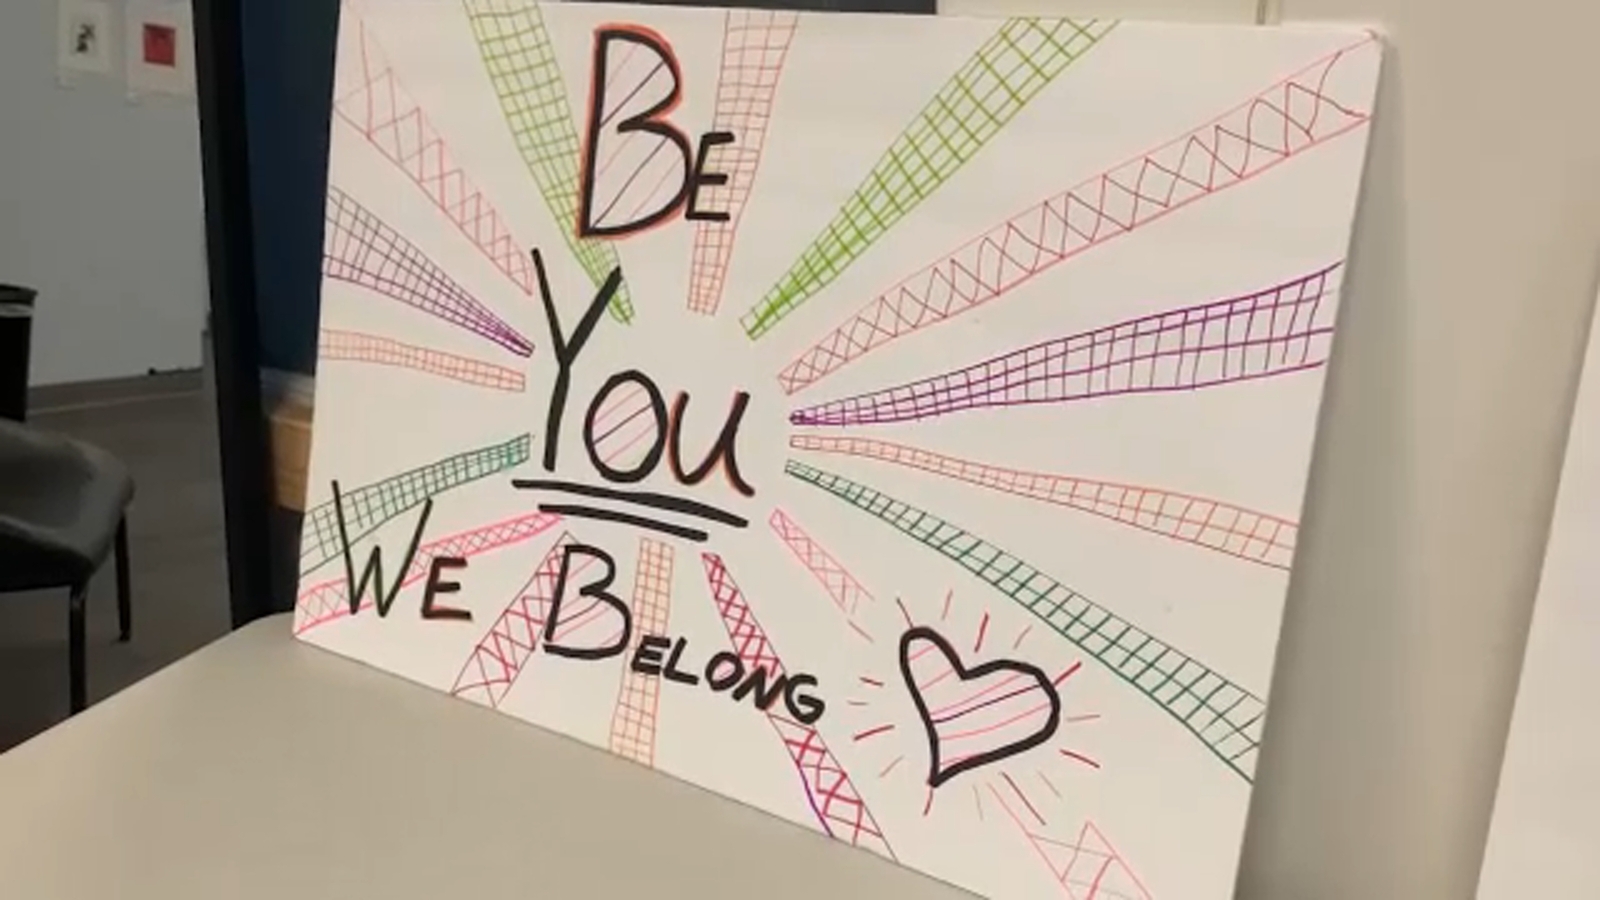 BE
YOU
WE BELONG